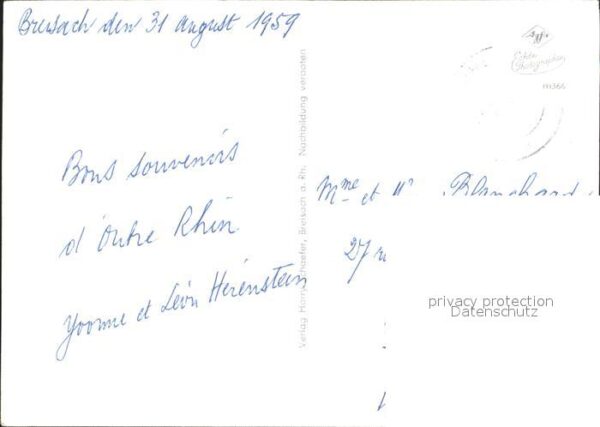 Breisach den 31 august 1959
Bons souvenirs
d'Outre Rhin
Yvonne et Léon Herenstein
Verlag Harry Schaefer, Breisach a. Rh. Nachbildung verboten
Agfa
Echte
Photographie
m366
Mme et Mr Blanchard
27 r
privacy protection
Datenschutz